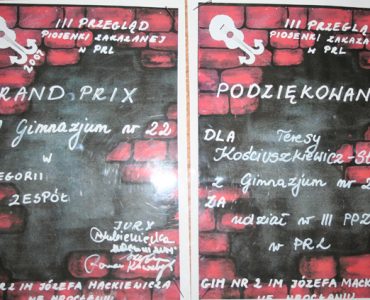 III PRZEGLĄD
PIOSENKI ZAKAZANEJ
W PRL
2009
GRAND PRIX
Gimnazjum nr 22
w
ZESPÓŁ
JURY
GIM NR 2 IM JÓZEFA MACKIEWICZA
WE WROCŁAWIU
III PRZEGLĄ
PIOSENKI ZAKAZA
W PRL
PODZIĘKOWAN
DLA Teresy
Kościuszkiewicz-St
z Gimnazjum nr 2
ZA
udział w III PPZ
w PRL
GIM NR 2 IM JÓZEFA MACK
WE WROCŁAWIU